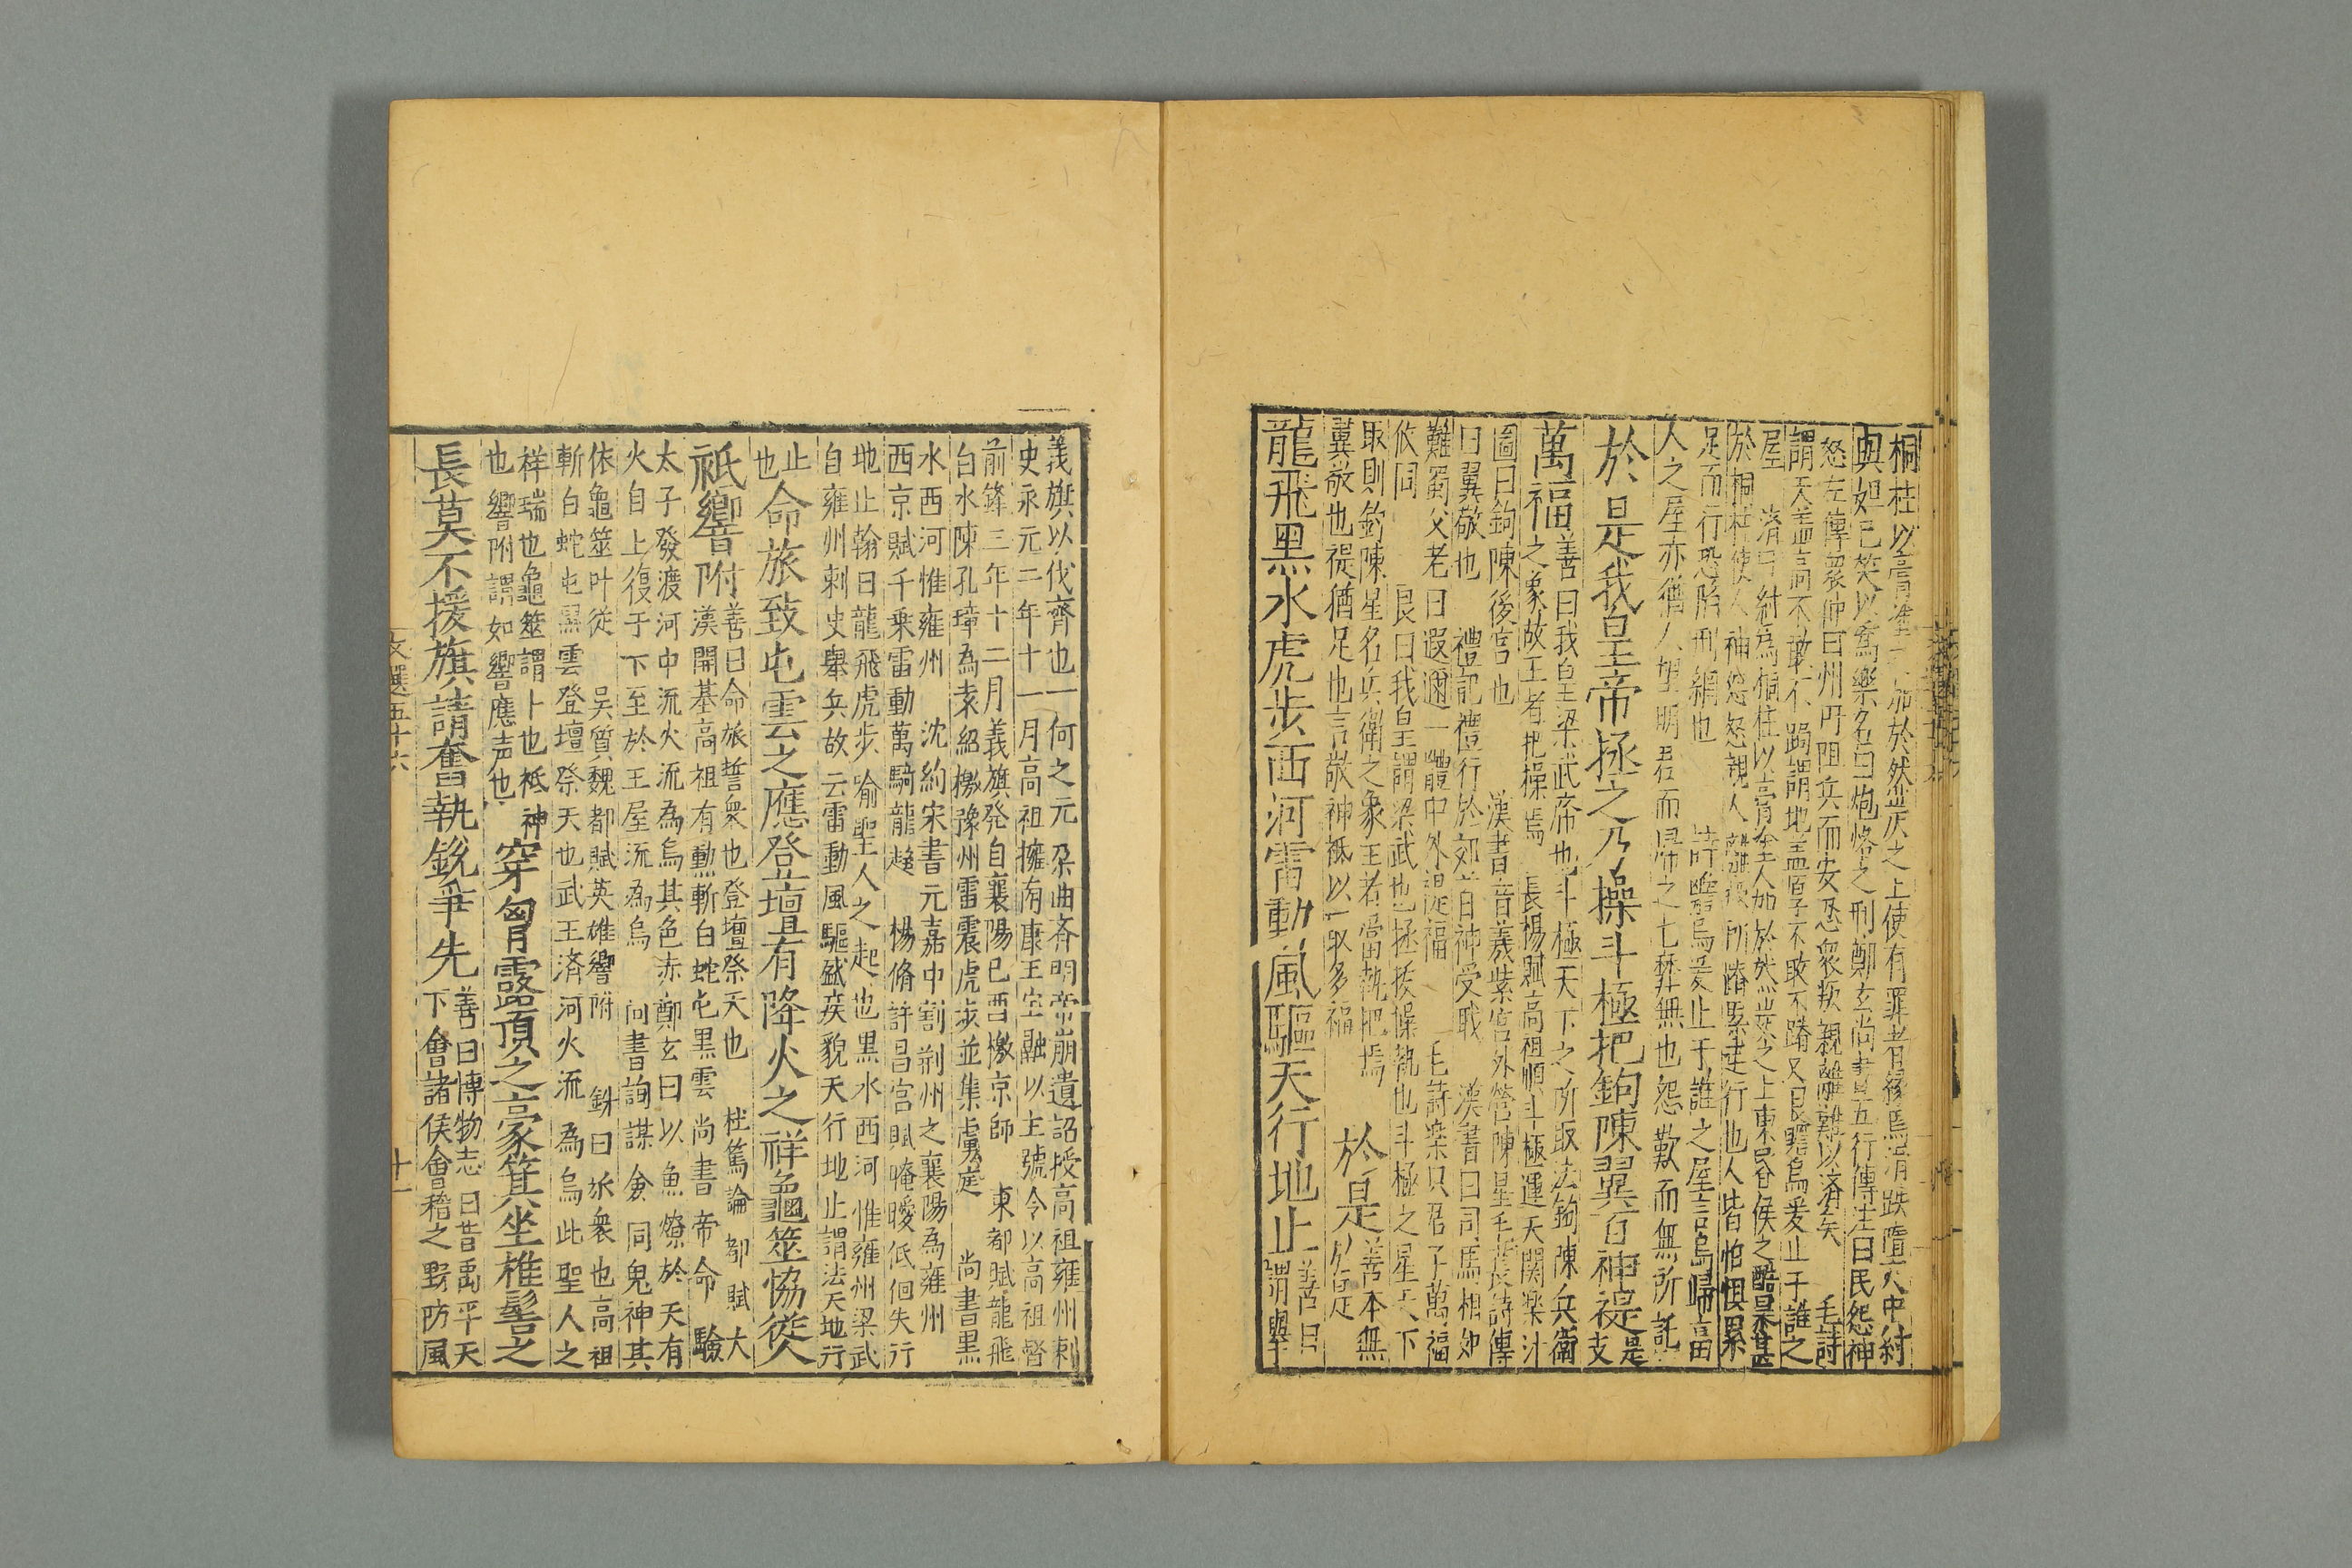 桐柱以膏塗之加於然炭之上使有罪者緣焉滑跌墮火中紂
與妲己笑以爲樂名曰炮烙之刑鄭玄尚書五行傳注曰民怨神
怒左傳衆仲曰州吁阻兵而安忍衆叛親離難以済矣 毛詩
謂天蓋高不敢不跼謂地蓋厚不敢不蹐又曰瞻烏爰止于誰之
屋 済曰紂為銅柱以膏塗人加於然炭之上東昏侯之酷暴甚
於桐柱使人神怨怒親人離叛所蹐累足行也人皆怕惧累
足而行恐陷刑網也 詩瞻烏爰止于誰之屋言烏歸富
人之屋亦猶人望明君而歸之七辟無也怨歎而無所託
於是我皇帝拯之乃操斗極把鉤陳翼百神禔是支
萬福善曰我皇梁武帝也斗極天下之所取法鉤陳兵衛
之象故王者把操焉 長楊賦高祖順斗極運天関楽汁
圖曰鉤陳後宮也 漢書音義紫宮外營陳星毛萇詩傳
曰翼敬也 禮記禮行於郊百神受戝 漢書曰司馬相如
難蜀父老曰遐邇一體中外禔福 毛詩楽只君子萬福
攸同 良曰我皇謂梁武也拯挨操執也斗極之星天下
取則鉤陳星名兵衛之象王者當執把焉 於是善本無於是
翼敬也禔猶足也言敬神祗以取多福
龍飛黒水虎步西河雷動風驅天行地止善曰謂舉
義旗以伐齊也 何之元 梁曲斉明帝崩遺詔授高祖雍州刺
史永元二年十一月高祖擁南康王宝融以主號令以高祖督
前鋒三年十二月義旗発自襄陽已酉檄京師 東都賦龍飛
白水陳孔璋為袁紹檄豫州雷震虎歩並集虜庭 尚書黒
水西河惟雍州 沈約宋書元嘉中割荊州之襄陽為雍州
西京賦千乗雷動萬騎龍趍 楊脩許昌宮賦晻曖低佪失行
地止翰曰龍飛虎歩喻聖人之起也黒水西河惟雍州梁武
自雍州刺史舉兵故云雷動風驅盛疾貌天行地止謂法天地行
止也命旅致屯雲之應登壇有降火之祥龜筮恊從
祗響附善曰命旅誓衆也登壇祭天也 杜篤論都賦大
漢開基高祖有勲斬白蛇屯黒雲 尚書帝命驗
太子發渡河中流火流為烏其色赤鄭玄曰以魚燎於天有
火自上復于下至於王屋流為烏 尚書詢謀僉同鬼神其
依龜筮叶従 吳質魏都賦英雄響附 銑曰旅衆也高祖
斬白蛇屯黒雲登壇祭天也武王済河火流為烏此聖人之
祥瑞也龜筮謂卜也祗神
也響附謂如響應声也 穿胷露頂之豪箕坐椎髻之
長莫不援旗請奮執銳爭先善曰博物志曰昔禹平天
下會諸侯會稽之野防風
文選五十六
十一